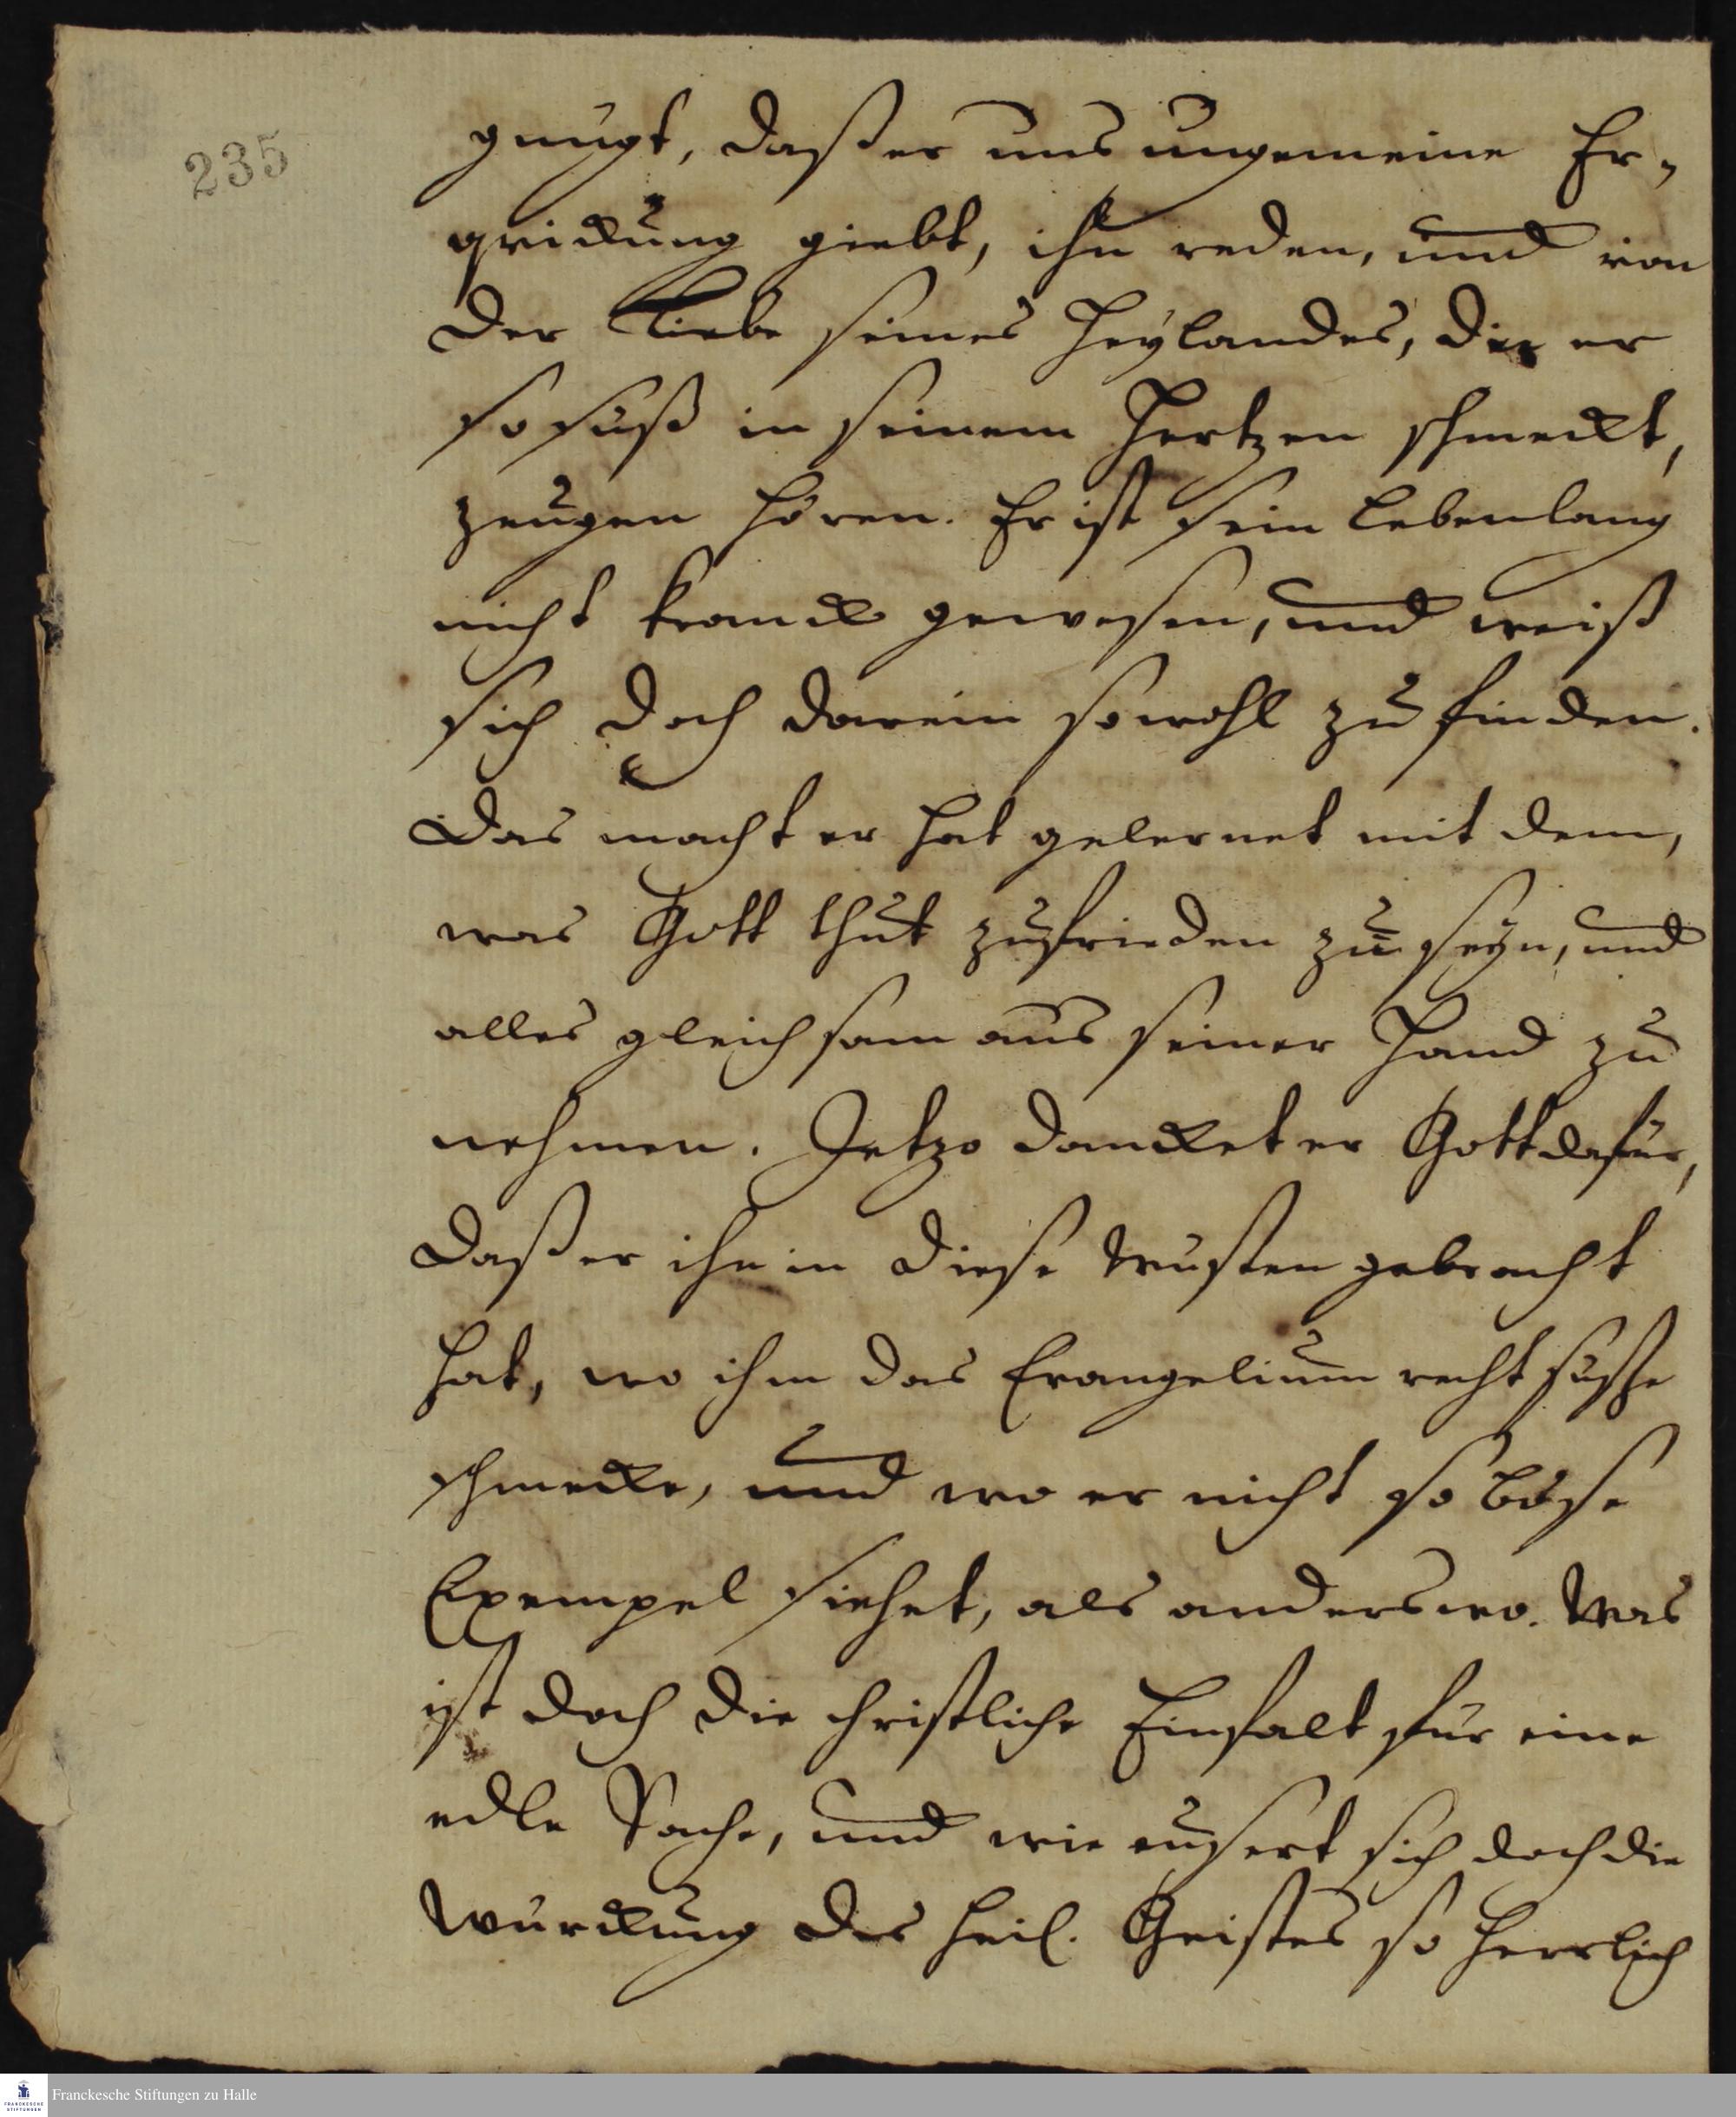 235
gnügt, daß er uns ungemeine Er-
qvickung giebt, ihn reden, und von
der Liebe seines Heylandes, die er
so süß in seinem Hertzen schmeckt,
zeugen hören. Er ist sein lebenlang
nicht kranck gewesen, und weiß
sich doch darein so wohl zu finden.
Das macht er hat gelernet mit dem,
was Gott thut zufrieden zu seyn, und
alles gleichsam aus seiner Hand zu
nehmen. Jetzo dancket er Gott dafür,
daß er ihn in diese Wüsten gebracht
hat, wo ihm das Evangelium recht süsse
schmecke, und wo er nicht so böse
Exempel siehet, als anderswo. Was
ist doch die christliche Einfalt für eine
edle Sache, und wie eusert sich doch die
Würckung des heil. Geistes so herrlich
Franckesche Stiftungen zu Halle
FRANCKESCHE
STIFTUNGEN